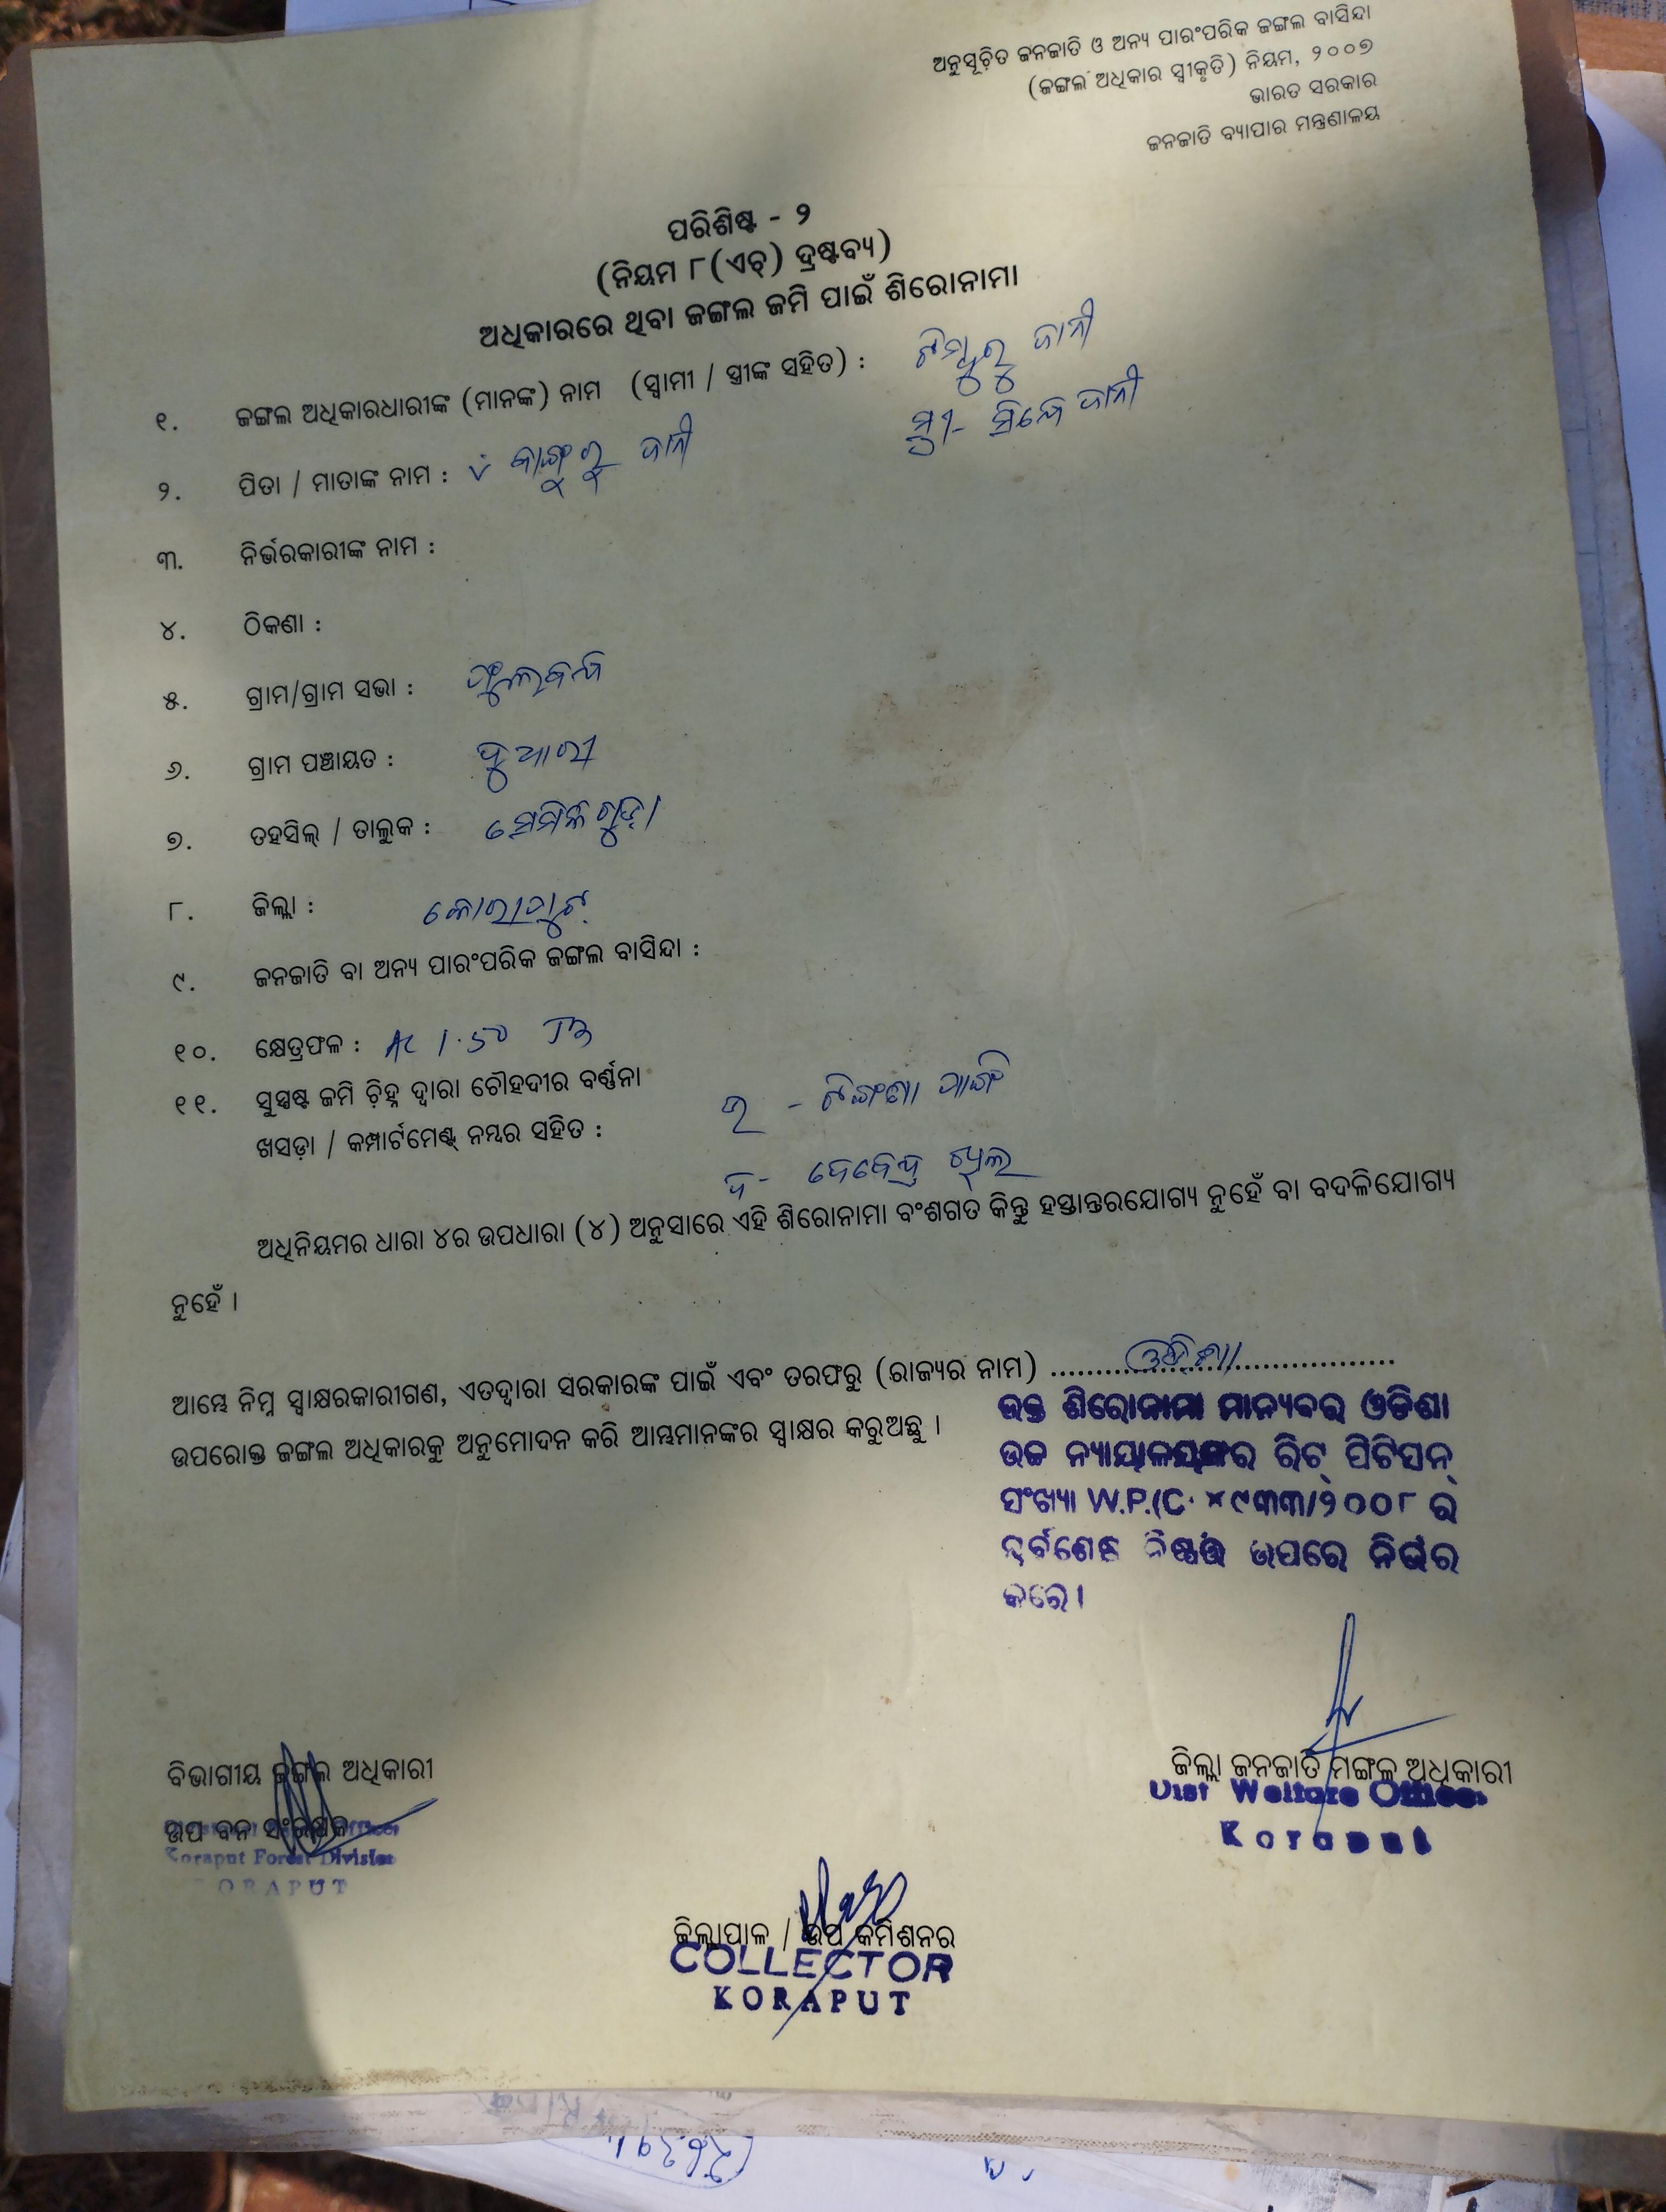 ଅନୁସୂଚିତ ଜନଜାତି ଓ ଅନ୍ୟ ପାରଂପରିକ ଜଙ୍ଗଲ ବାସିନ୍ଦା
(ଜଙ୍ଗଲ ଅଧିକାର ସ୍ୱୀକୃତି) ନିୟମ, ୨୦୦୭
ଭାରତ ସରକାର
ଜନଜାତି ବ୍ୟାପାର ମନ୍ତ୍ରଣାଳୟ
ପରିଶିଷ୍ଟ - ୨
(ନିୟମ ୮(ଏଚ୍) ଦ୍ରଷ୍ଟବ୍ୟ)
ଅଧିକାରରେ ଥିବା ଜଙ୍ଗଲ ଜମି ପାଇଁ ଶିରୋନାମା
୧. ଜଙ୍ଗଲ ଅଧିକାରଧାରୀଙ୍କ (ମାନଙ୍କ) ନାମ (ସ୍ୱାମୀ / ସ୍ତ୍ରୀଙ୍କ ସହିତ) : ଜାନୀ
ସ୍ତ୍ରୀ- ଜାନୀ
୨. ପିତା / ମାତାଙ୍କ ନାମ : ଜାନୀ
୩. ନିର୍ଭରକାରୀଙ୍କ ନାମ :
୪. ଠିକଣା :
୫. ଗ୍ରାମ/ଗ୍ରାମ ସଭା :
୬. ଗ୍ରାମ ପଞ୍ଚାୟତ :
୭. ତହସିଲ୍ / ତାଲୁକ : ସେମିଳିଗୁଡ଼ା
୮. ଜିଲ୍ଲା : କୋରାପୁଟ
୯. ଜନଜାତି ବା ଅନ୍ୟ ପାରଂପରିକ ଜଙ୍ଗଲ ବାସିନ୍ଦା :
୧୦. କ୍ଷେତ୍ରଫଳ : Ac 1.50
୧୧. ସୁସ୍ପଷ୍ଟ ଜମି ଚ଼ିହ୍ନ ଦ୍ୱାରା ଚୌହଦୀର ବର୍ଣ୍ଣନା
ଖସଡ଼ା / କମ୍ପାର୍ଟମେଣ୍ଟ୍ ନମ୍ବର ସହିତ :
ଉ -
ଦ - ଦେବେନ୍ଦ୍ର
ଅଧିନିୟମର ଧାରା ୪ର ଉପଧାରା (୪) ଅନୁସାରେ ଏହି ଶିରୋନାମା ବଂଶଗତ କିନ୍ତୁ ହସ୍ତାନ୍ତରଯୋଗ୍ୟ ନୁହେଁ ବା ବଦଳିଯୋଗ୍ୟ
ନୁହେଁ ।
ଆମ୍ଭେ ନିମ୍ନ ସ୍ୱାକ୍ଷରକାରୀଗଣ, ଏତଦ୍ୱାରା ସରକାରଙ୍କ ପାଇଁ ଏବଂ ତରଫରୁ (ରାଜ୍ୟର ନାମ) ......ଓଡ଼ିଶା......
ଉପରୋକ୍ତ ଜଙ୍ଗଲ ଅଧିକାରକୁ ଅନୁମୋଦନ କରି ଆମ୍ଭମାନଙ୍କର ସ୍ୱାକ୍ଷର କରୁଅଛୁ ।
ଉକ୍ତ ଶିରୋନାମା ମାନ୍ୟବର ଓଡିଶା
ଉଚ୍ଚ ନ୍ୟାୟାଳୟଙ୍କର ରିଟ୍ ପିଟିସନ୍
ସଂଖ୍ୟା W.P.(C ୪୯୩୩/୨୦୦୮ ର
ସର୍ବଶେଷ ନିଷ୍ପତ୍ତି ଉପରେ ନିର୍ଭର
କରେ।
ବିଭାଗୀୟ ଜଙ୍ଗଲ ଅଧିକାରୀ
ଉପ ବନ ସଂରକ୍ଷକ
Koraput Forest Division
KORAPUT
ଜିଲ୍ଲା ଜନଜାତି ମଙ୍ଗଳ ଅଧିକାରୀ
Dist Welfare Officer
Koraput
ଜିଲ୍ଲାପାଳ / ଉପ କମିଶନର
COLLECTOR
KORAPUT